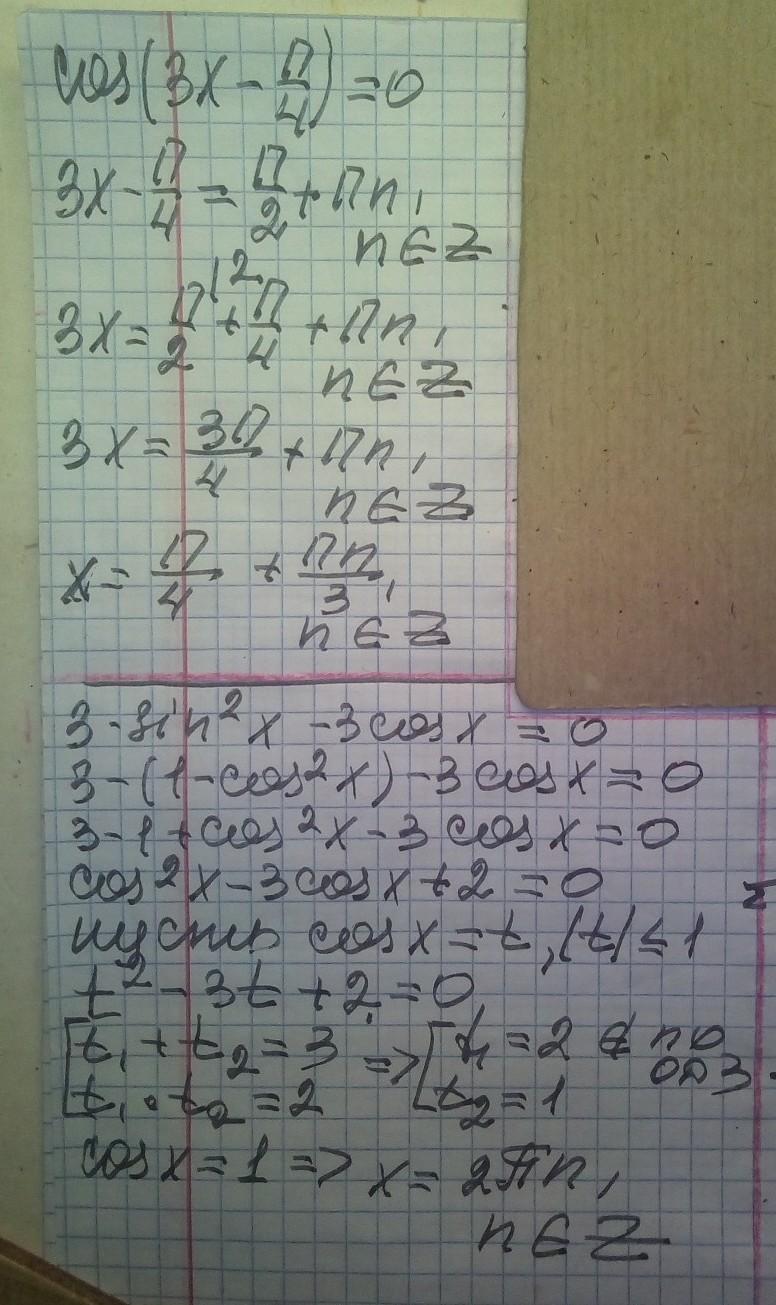 cos(3x - П/4) = 0
3x - П/4 = П/2 + Пn,
n ∈ Z
3x = П/2 |2 + П/4 + Пn,
n ∈ Z
3x = 3П/4 + Пn,
n ∈ Z
x = П/4 + Пn/3,
n ∈ Z
3 - sin²x - 3cosx = 0
3 - (1 - cos²x) - 3cosx = 0
3 - 1 + cos²x - 3cosx = 0
cos²x - 3cosx + 2 = 0
пусть cosx = t, |t| ≤ 1
t² - 3t + 2 = 0
[t₁ + t₂ = 3 => [t₁ = 2 ∉ по ОДЗ
t₁ · t₂ = 2 t₂ = 1
cosx = 1 => x = 2πn,
n ∈ Z